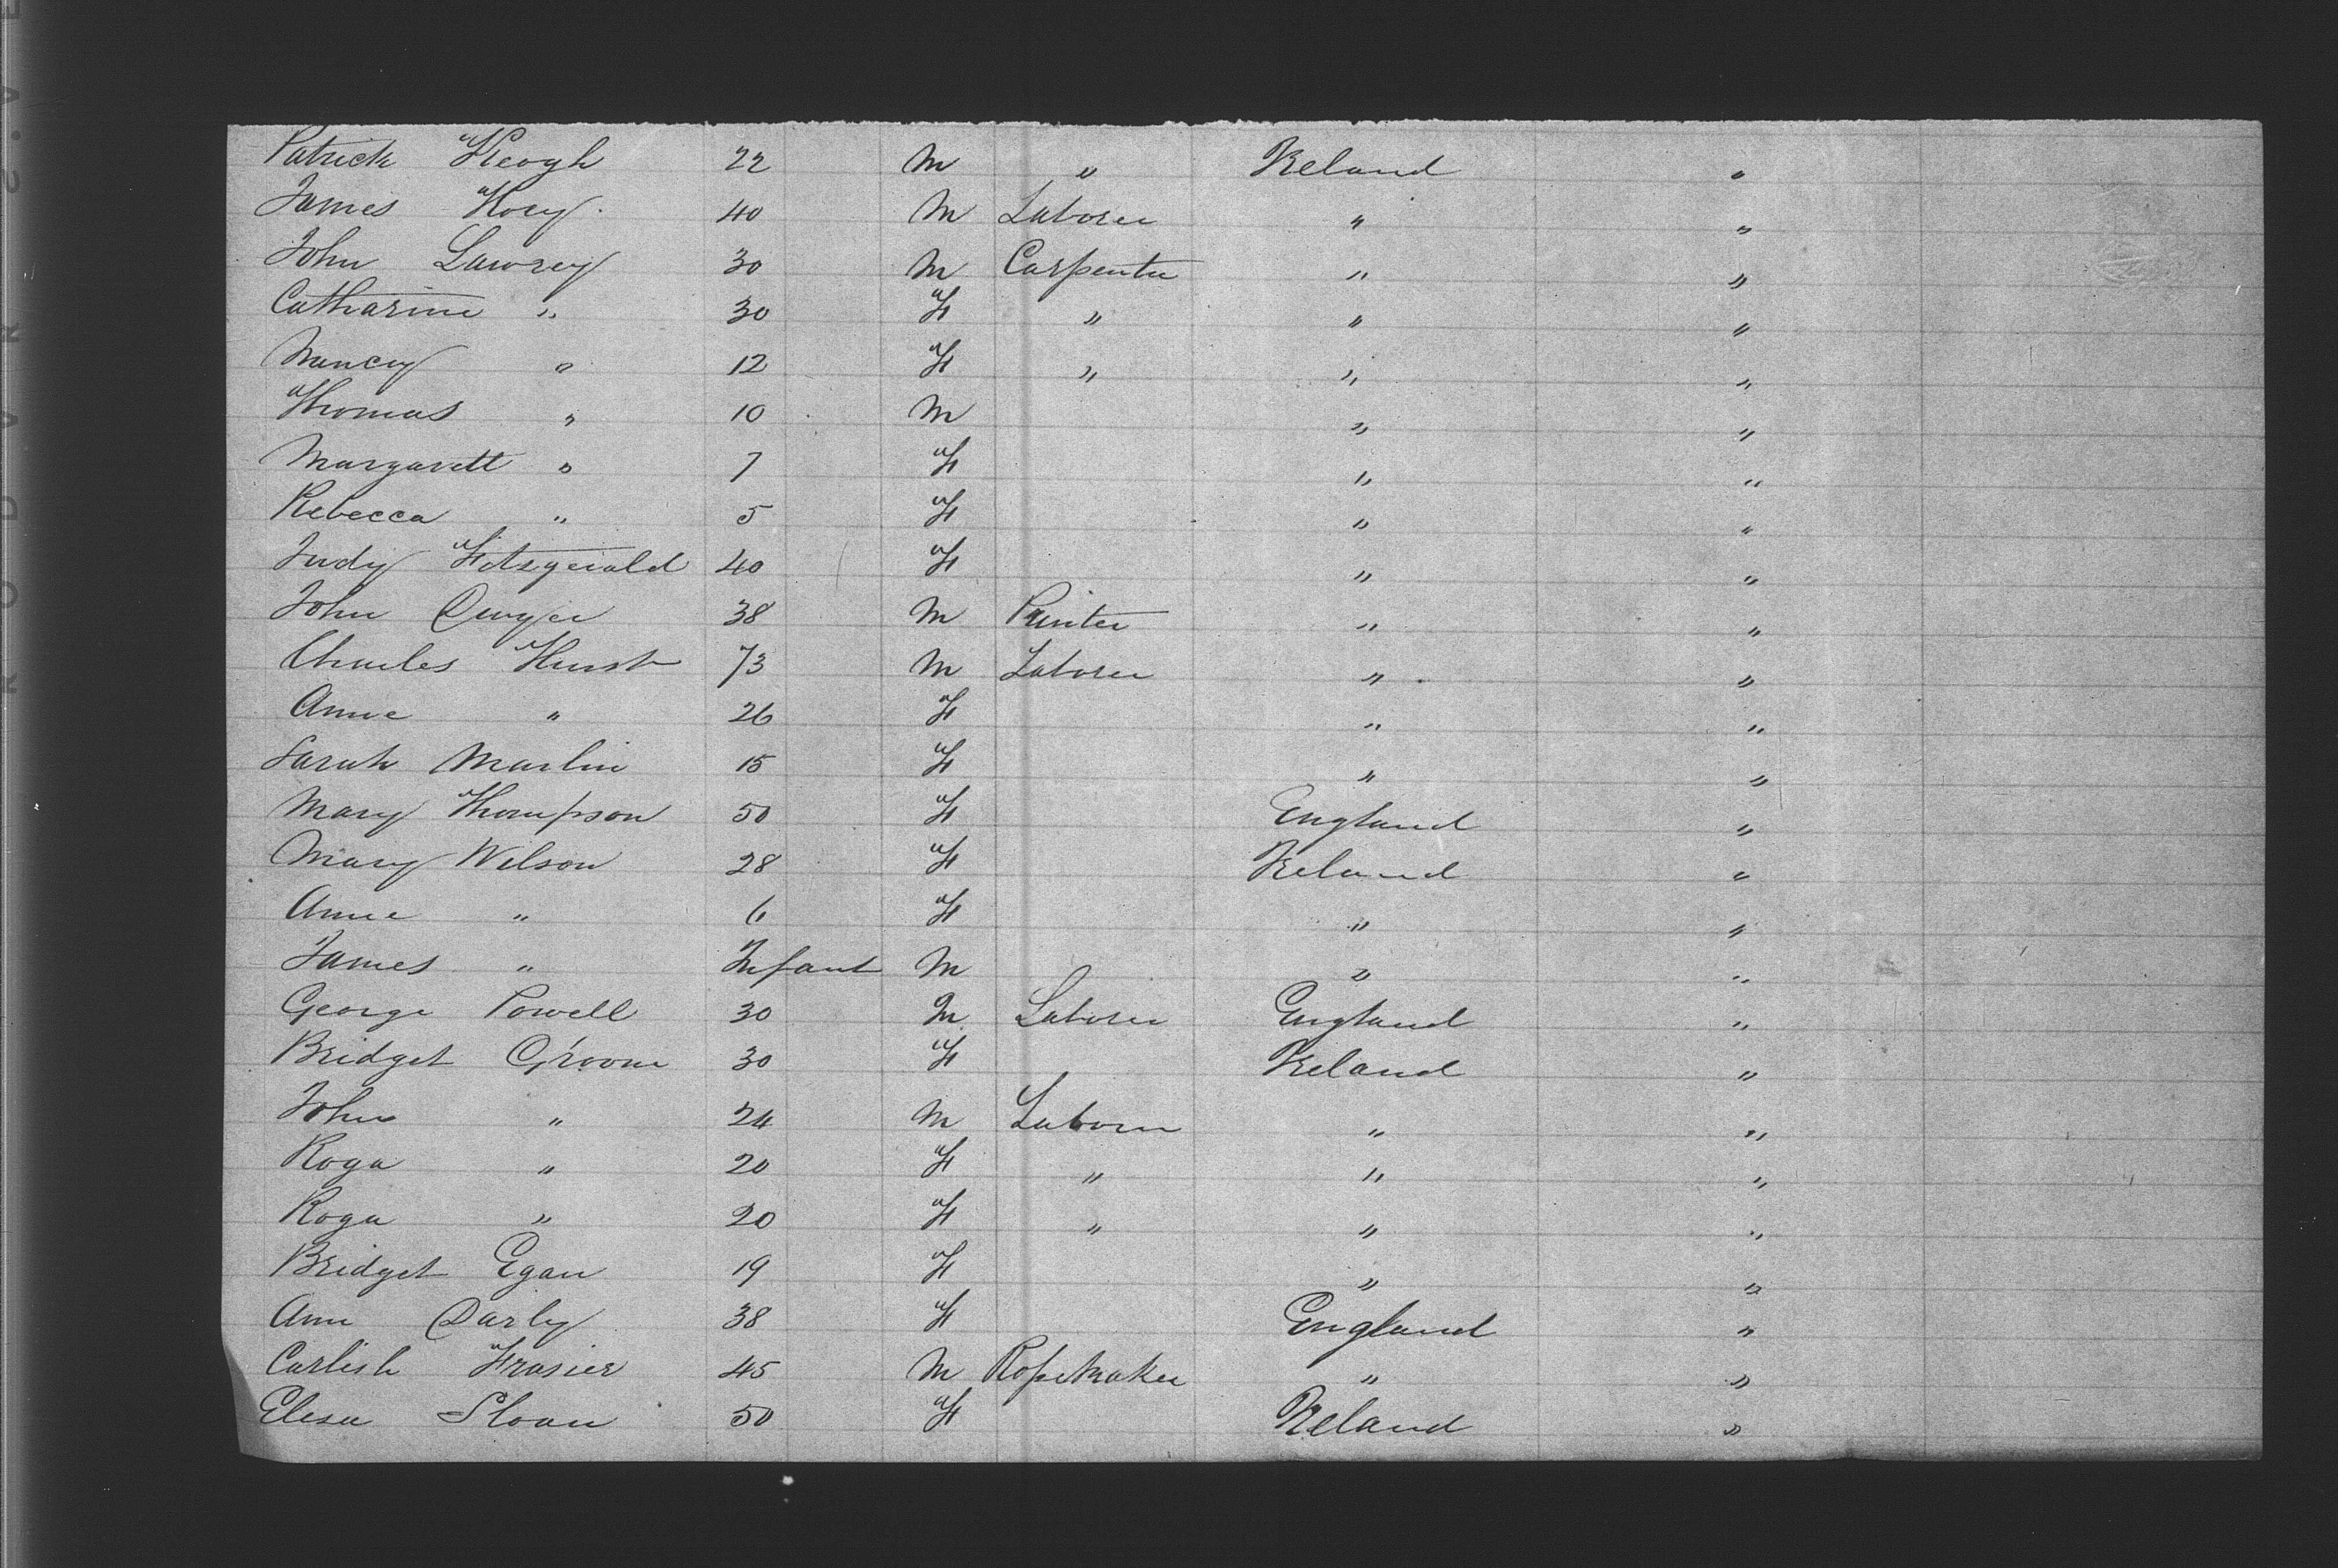 Patrick Keogh 22 M " Ireland "
James Hoey 40 M Laborer " "
John Lawrey 30 M Carpenter " "
Catharine " 30 F " " "
Nancy " 12 F " " "
Thomas " 10 M " "
Margarett " 7 F " "
Rebecca " 5 F " "
Judy Fitzgerald 40 F " "
John Dwyer 38 M Painter " "
Charles Hurst 73 M Laborer " "
Anne " 26 F " "
Sarah Marlin 15 F " "
Mary Thompson 50 F England "
Mary Wilson 28 F Ireland "
Anne " 6 F " "
James " Infant M " "
George Powell 30 M Laborer England "
Bridget Groom 30 F Ireland "
John " 24 M Laborer " "
Roga " 20 F " " "
Roga " 20 F " " "
Bridget Egan 19 F " "
Ann Darly 38 F England "
Frasier 45 M Ropemaker " "
Elesa Sloan 50 F Ireland "